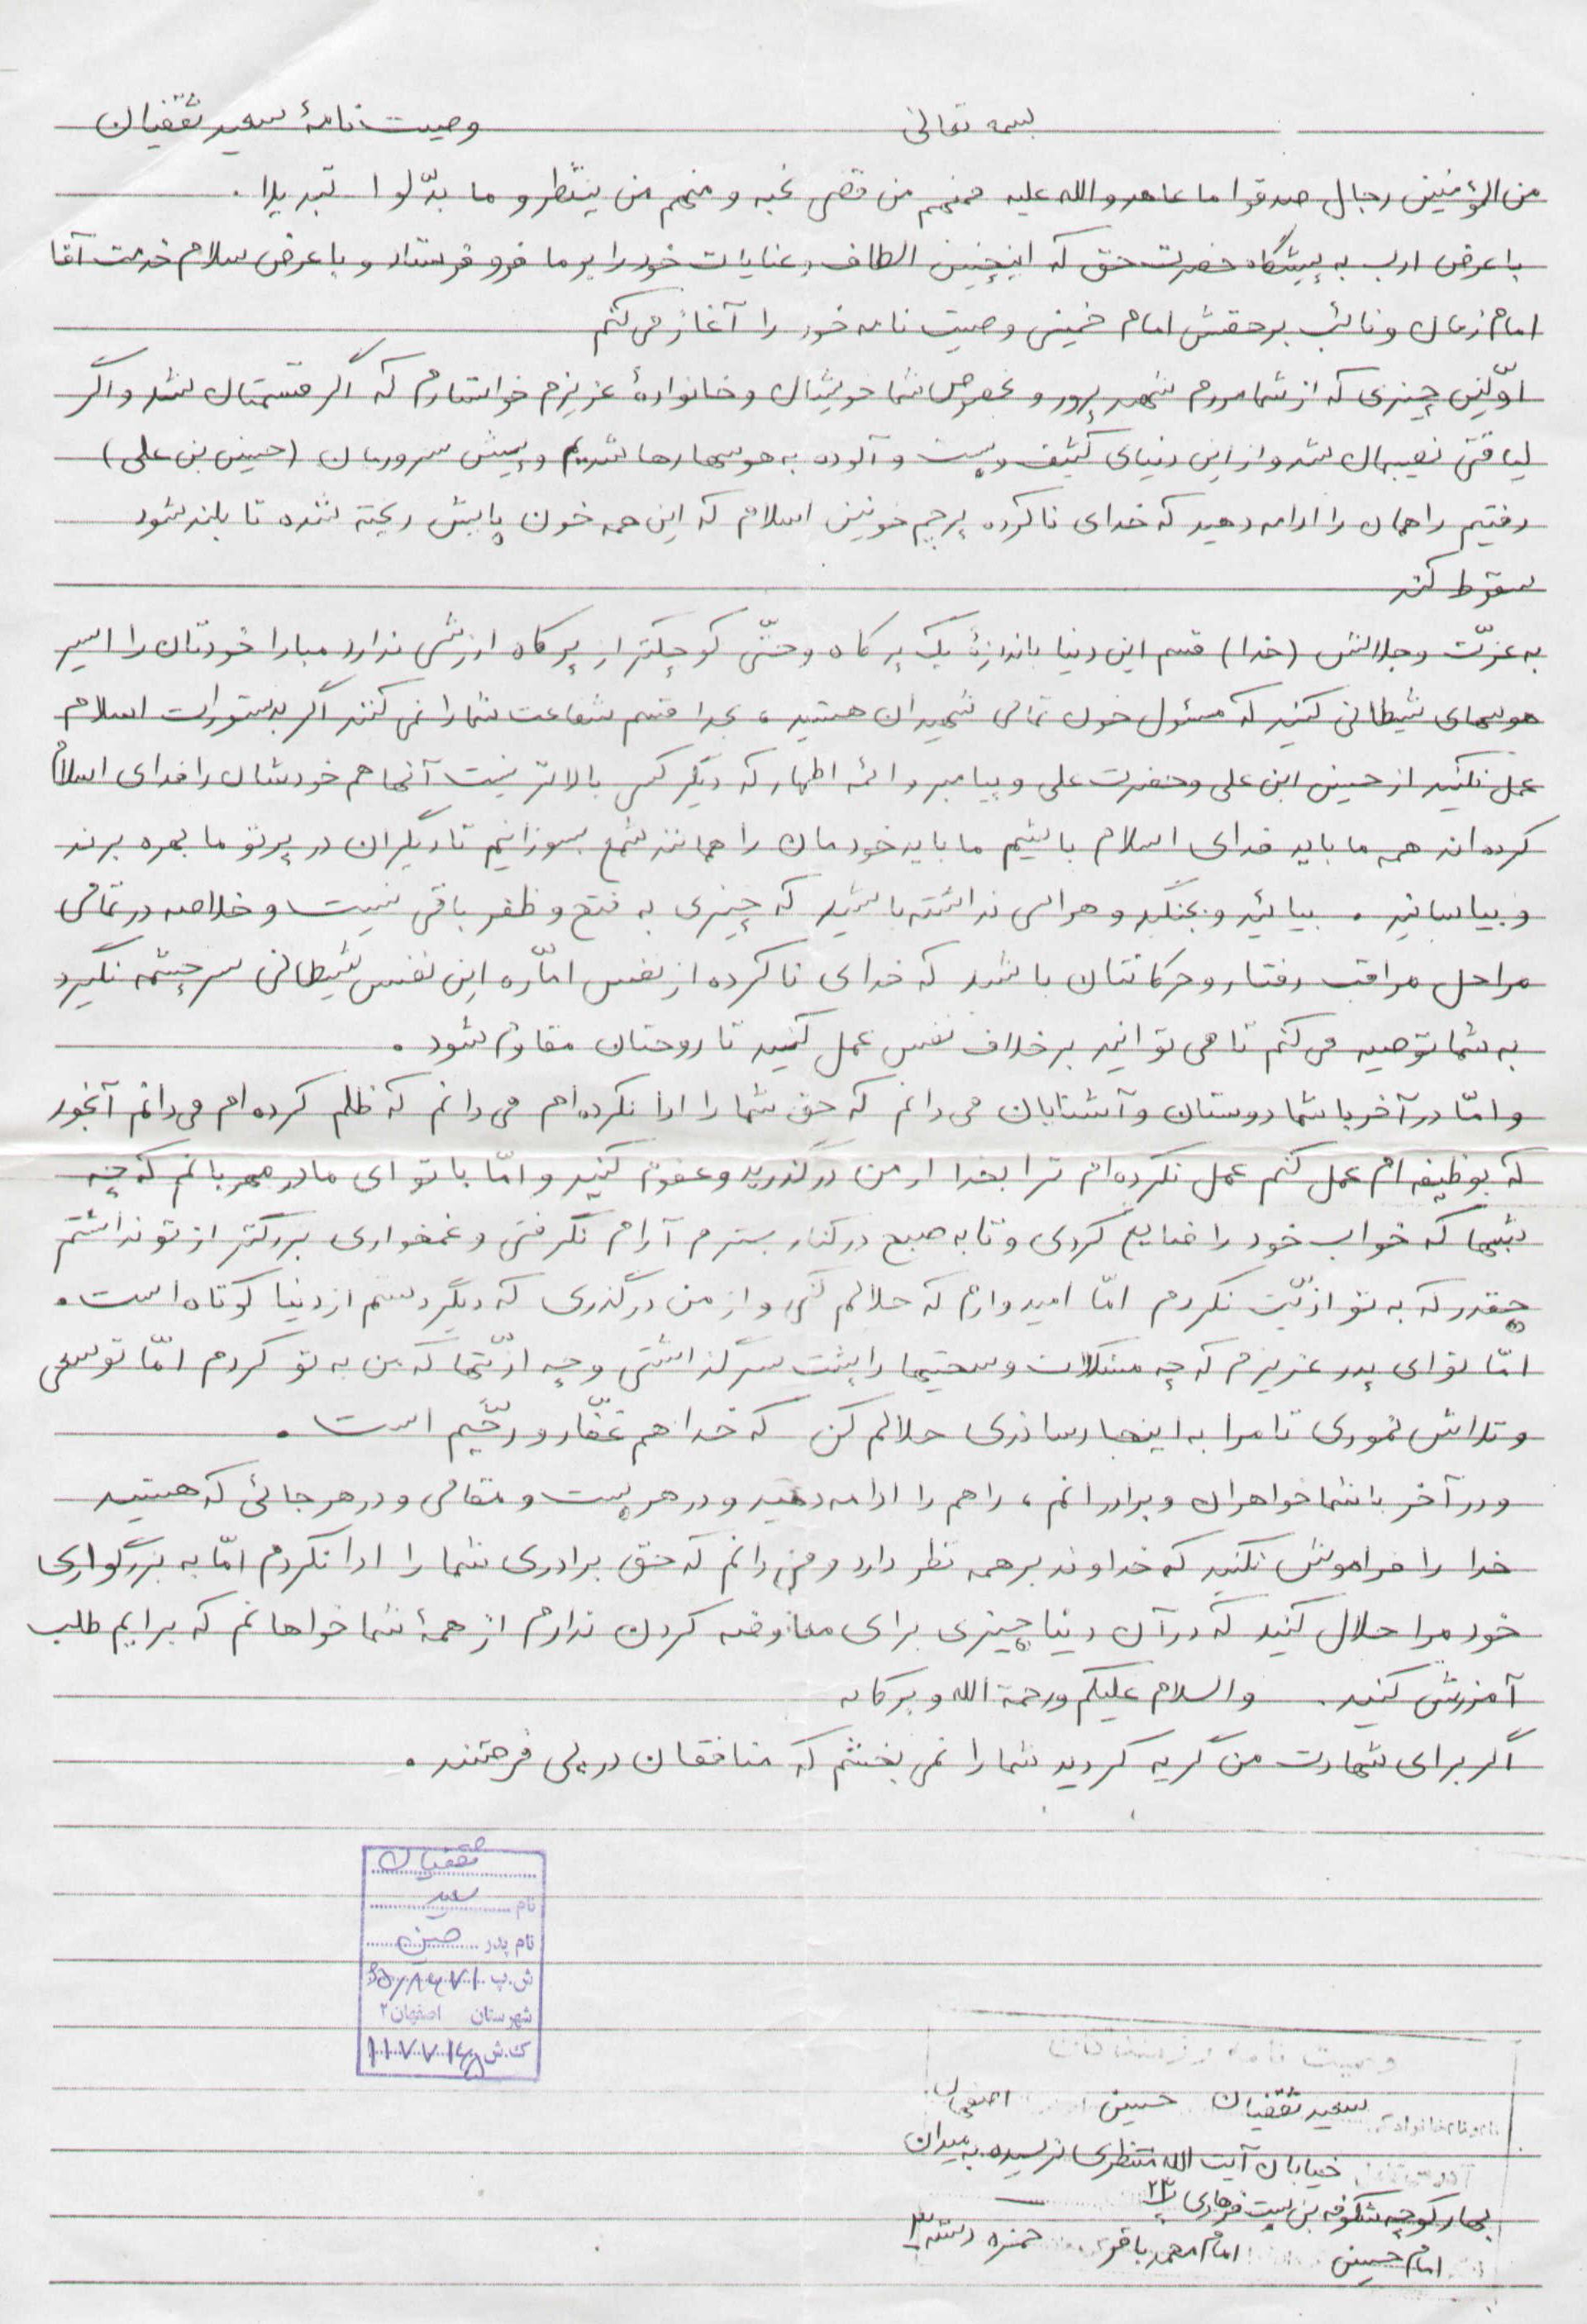 بسمه تعالی
وصیت نامهٔ سعید ثقفیان
من المؤمنین رجال صدقوا ما عاهدو الله علیه فمنهم من قضی نحبه و منهم من ینتظر و ما بدّلوا تبدیلا .
با عرض ادب به پیشگاه حضرت حق که اینچنین الطاف و عنایات خود را بر ما فرو فرستاد و با عرض سلام خدمت آقا
امام زمان و نائب برحقش امام خمینی وصیت نامه خود را آغاز می کنم
اوّلین چیزی که از شما مردم شهید پرور و بخصوص شما خویشان و خانوادهٔ عزیزم خواستارم که اگر قسمتمان شد و اگر
لیاقتی نصیبمان شد و از این دنیای کثیف و پست و آلوده به هوسها رها شدیم و پیش سرورمان (حسین بن علی)
رفتیم راهمان را ادامه دهید که خدای ناکرده پرچم خونین اسلام که این همه خون پایش ریخته شده تا بلند شود
سقوط کند
به عزّت و جلالش (خدا) قسم این دنیا باندازهٔ یک پر کاه و حتّی کوچکتر از پر کاه ارزشی ندارد مبادا خودتان را اسیر
هوسهای شیطانی کنید که مسئول خون تمامی شهیدان هستید ، بخدا قسم شفاعت شما را نمی کنند اگر بدستورات اسلام
عمل نکنید از حسین ابن علی و حضرت علی و پیامبر و ائمه اطهار که دیگر کسی بالاتر نیست آنها هم خودشان را فدای اسلام
کرده اند همه ما باید فدای اسلام باشیم ما باید خودمان را همانند شمع بسوزانیم تا دیگران در پرتو ما بهره برند
و بیاسایند . بیائید و بجنگید و هراسی نداشته باشید که چیزی به فتح و ظفر باقی نیست و خلاصه در تمامی
مراحل مراقب رفتار و حرکاتتان باشید که خدای ناکرده از نفس امّاره این نفس شیطانی سرچشمه نگیرد
به شما توصیه می کنم تا می توانید برخلاف نفس عمل کنید تا روحتان مقاوم شود .
و امّا در آخر با شما دوستان و آشنایان می دانم که حق شما را ادا نکرده ام می دانم که ظلم کرده ام می دانم آنجور
که بوظیفه ام عمل کنم عمل نکرده ام ترا بخدا از من درگذرید و عفوم کنید و امّا با تو ای مادر مهربانم که چه
شبها که خواب خود را ضایع کردی و تا به صبح در کنار بسترم آرام نگرفتی و غمخواری بزرگتر از تو نداشتم
چقدر که به تو اذیّت نکردم امّا امیدوارم که حلالم کنی و از من درگذری که دیگر دستم از دنیا کوتاه است .
امّا تو ای پدر عزیزم که چه مشکلات و سختیها را پشت سر گذاشتی و چه اذیّتها که من به تو کردم امّا تو سعی
و تلاش نمودی تا مرا به اینجا رساندی حلالم کن که خدا هم غفّار و رحیم است .
و در آخر با شما خواهران و برادرانم ، راهم را ادامه دهید و در هر پست و مقامی و در هر جائی که هستید
خدا را فراموش نکنید که خداوند بر همه نظر دارد و می دانم که حق برادری شما را ادا نکردم امّا به بزرگواری
خود مرا حلال کنید که در آن دنیا چیزی برای معاوضه کردن ندارم از همهٔ شما خواهانم که برایم طلب
آمرزش کنید . والسلام علیکم ورحمة الله و برکاته
اگر برای شهادت من گریه کردید شما را نمی بخشم که منافقان در پی فرصتند .
ثقفیان
نام سعید
نام پدر حسین
ش.پ
شهرستان اصفهان ۲
ک.ش
وصیت نامه
سعید ثقفیان حسین اصفهان
خیابان آیت الله منتظری نرسیده به میدان
بهار کوچه شکوفه بن بست فرهادی پ ۲۳
امام حسین امام محمد باقر حمزه دسته ۳